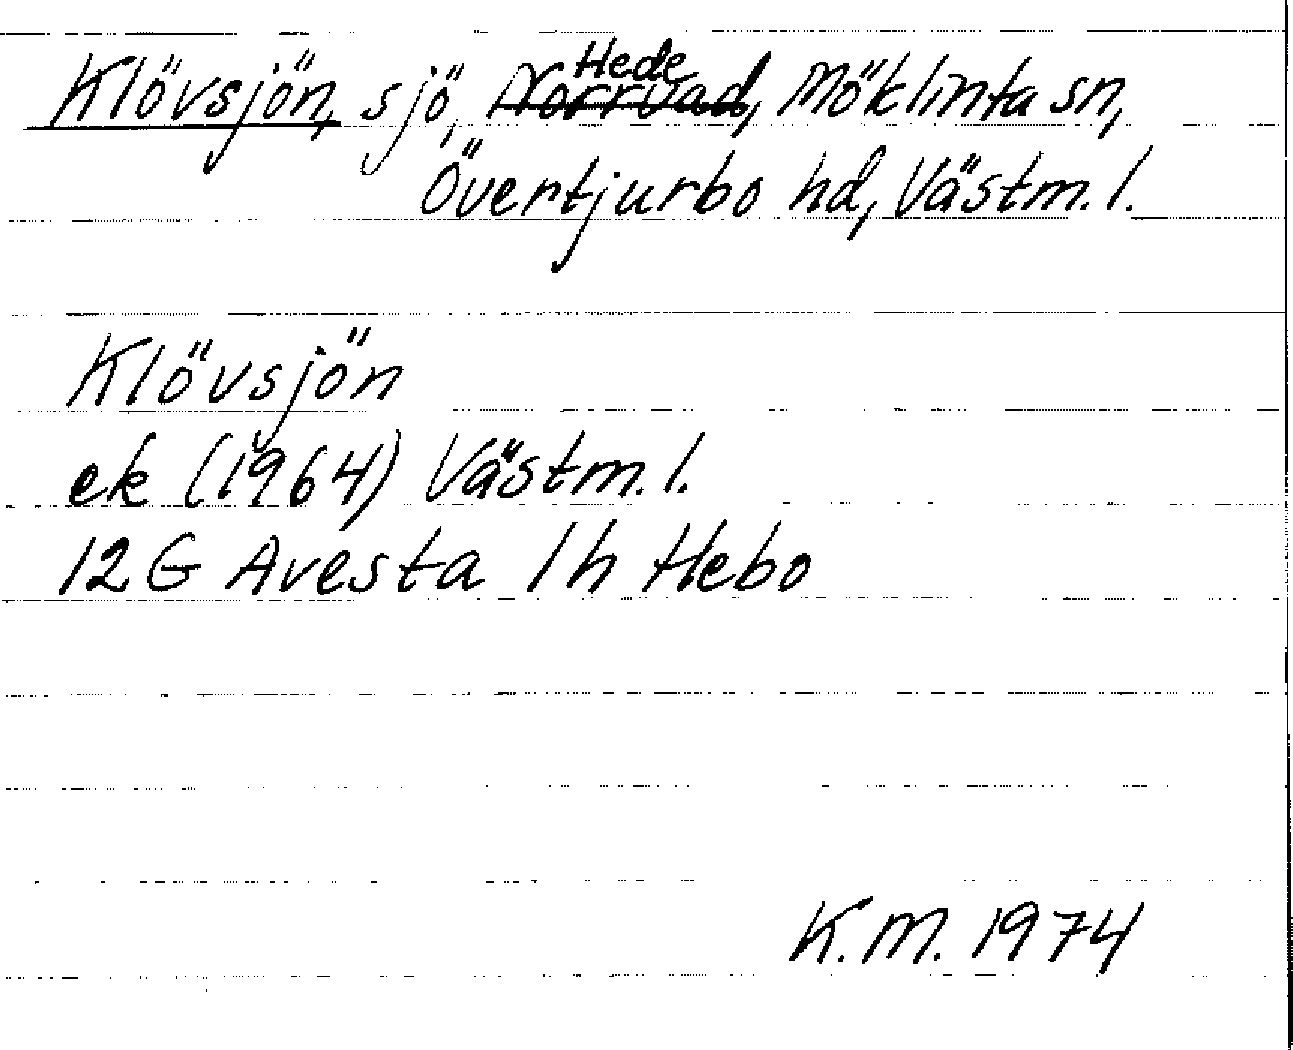 Klövsjön, sjö, Hede ~~Norrvad~~, Möklinta sn,
Övertjurbo hd, Västm. l.
Klövsjön
ek (1964) Västm. l.
12G Avesta 1h Hebo
K.M. 1974